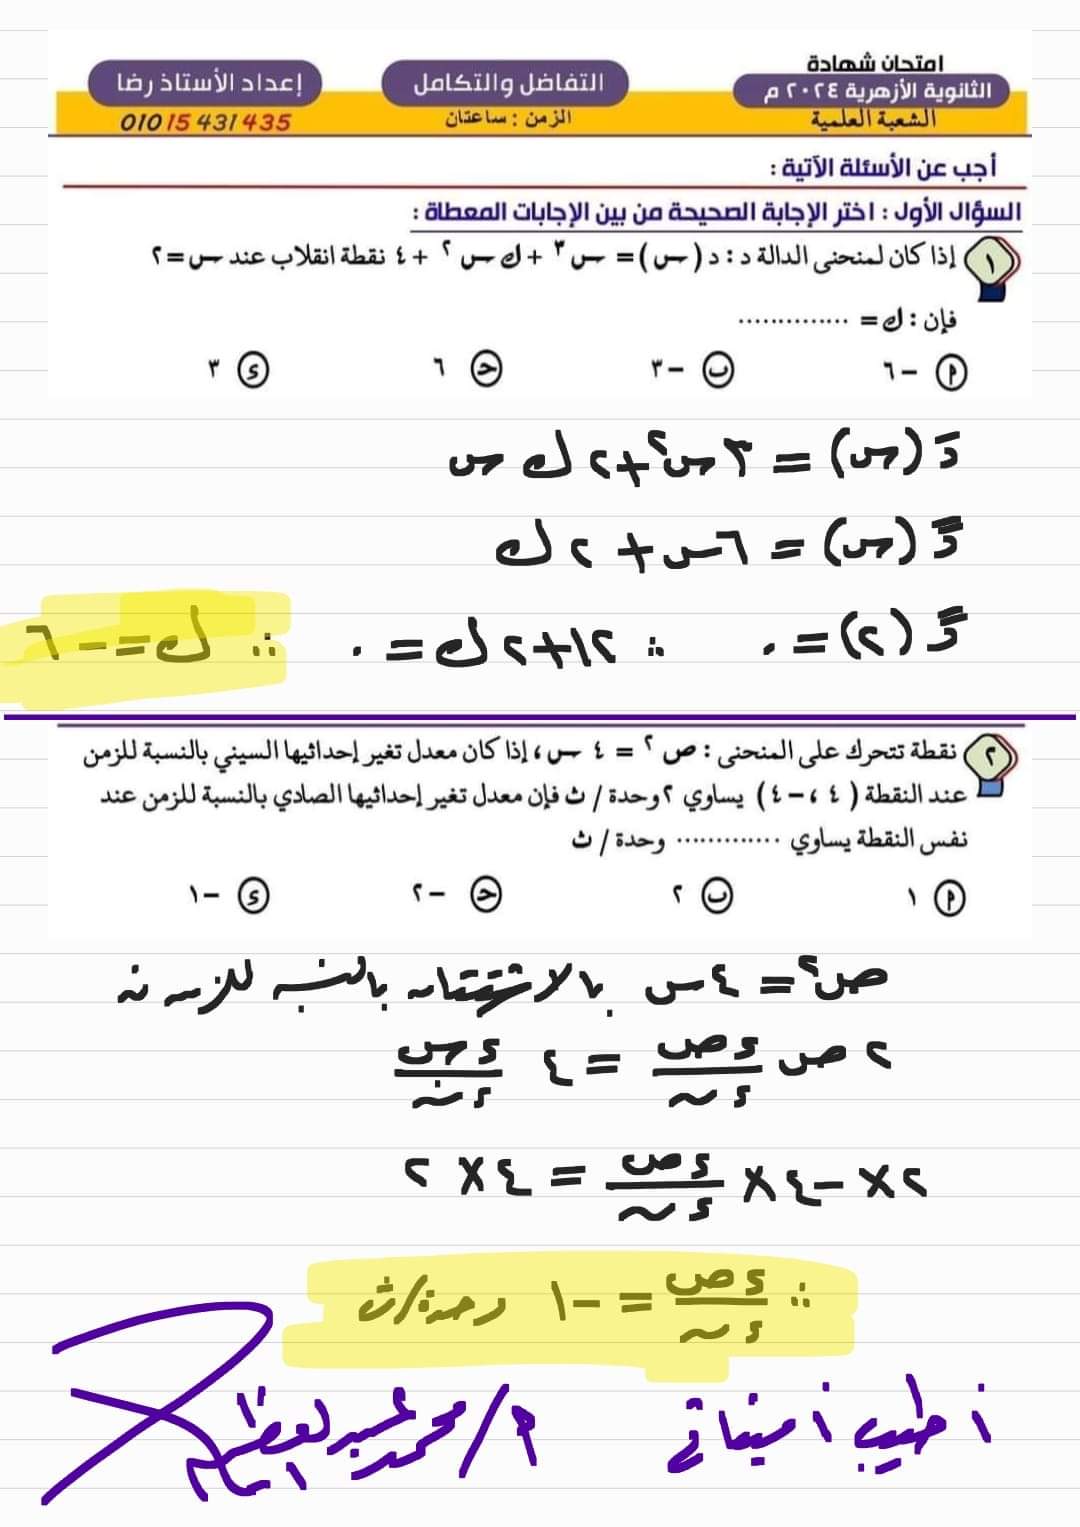 امتحان شهادة
الثانوية الأزهرية ٢٠٢٤ م
الشعبة العلمية
التفاضل والتكامل
الزمن : ساعتان
إعداد الأستاذ رضا
01015431435
أجب عن الأسئلة الآتية :
السؤال الأول : اختر الإجابة الصحيحة من بين الإجابات المعطاة :
١ إذا كان لمنحنى الدالة د : د (س) = س ٣ + ك س ٢ + ٤ نقطة انقلاب عند س = ٢
فإن : ك = ..............
أ -٦ ب -٣ ج ٦ د ٣
دَ (س) = ٣ س٢ + ٢ ك س
دً (س) = ٦ س + ٢ ك
دً (٢) = ٠ ∴ ١٢ + ٢ ك = ٠ ∴ ك = -٦
٢ نقطة تتحرك على المنحنى : ص ٢ = ٤ س ، إذا كان معدل تغير إحداثيها السيني بالنسبة للزمن
عند النقطة ( ٤ ، -٤ ) يساوي ٢ وحدة / ث فإن معدل تغير إحداثيها الصادي بالنسبة للزمن عند
نفس النقطة يساوي ............. وحدة / ث
أ ١ ب ٢ ج -٢ د -١
ص٢ = ٤ س بالاشتقاق بالنسبة للزمن ن
٢ ص ءص/ءن = ٤ ءس/ءن
٢ × -٤ × ءص/ءن = ٤ × ٢
∴ ءص/ءن = -١ وحدة/ث
أطيب أمنياتي أ/ محمد عبد العظيم